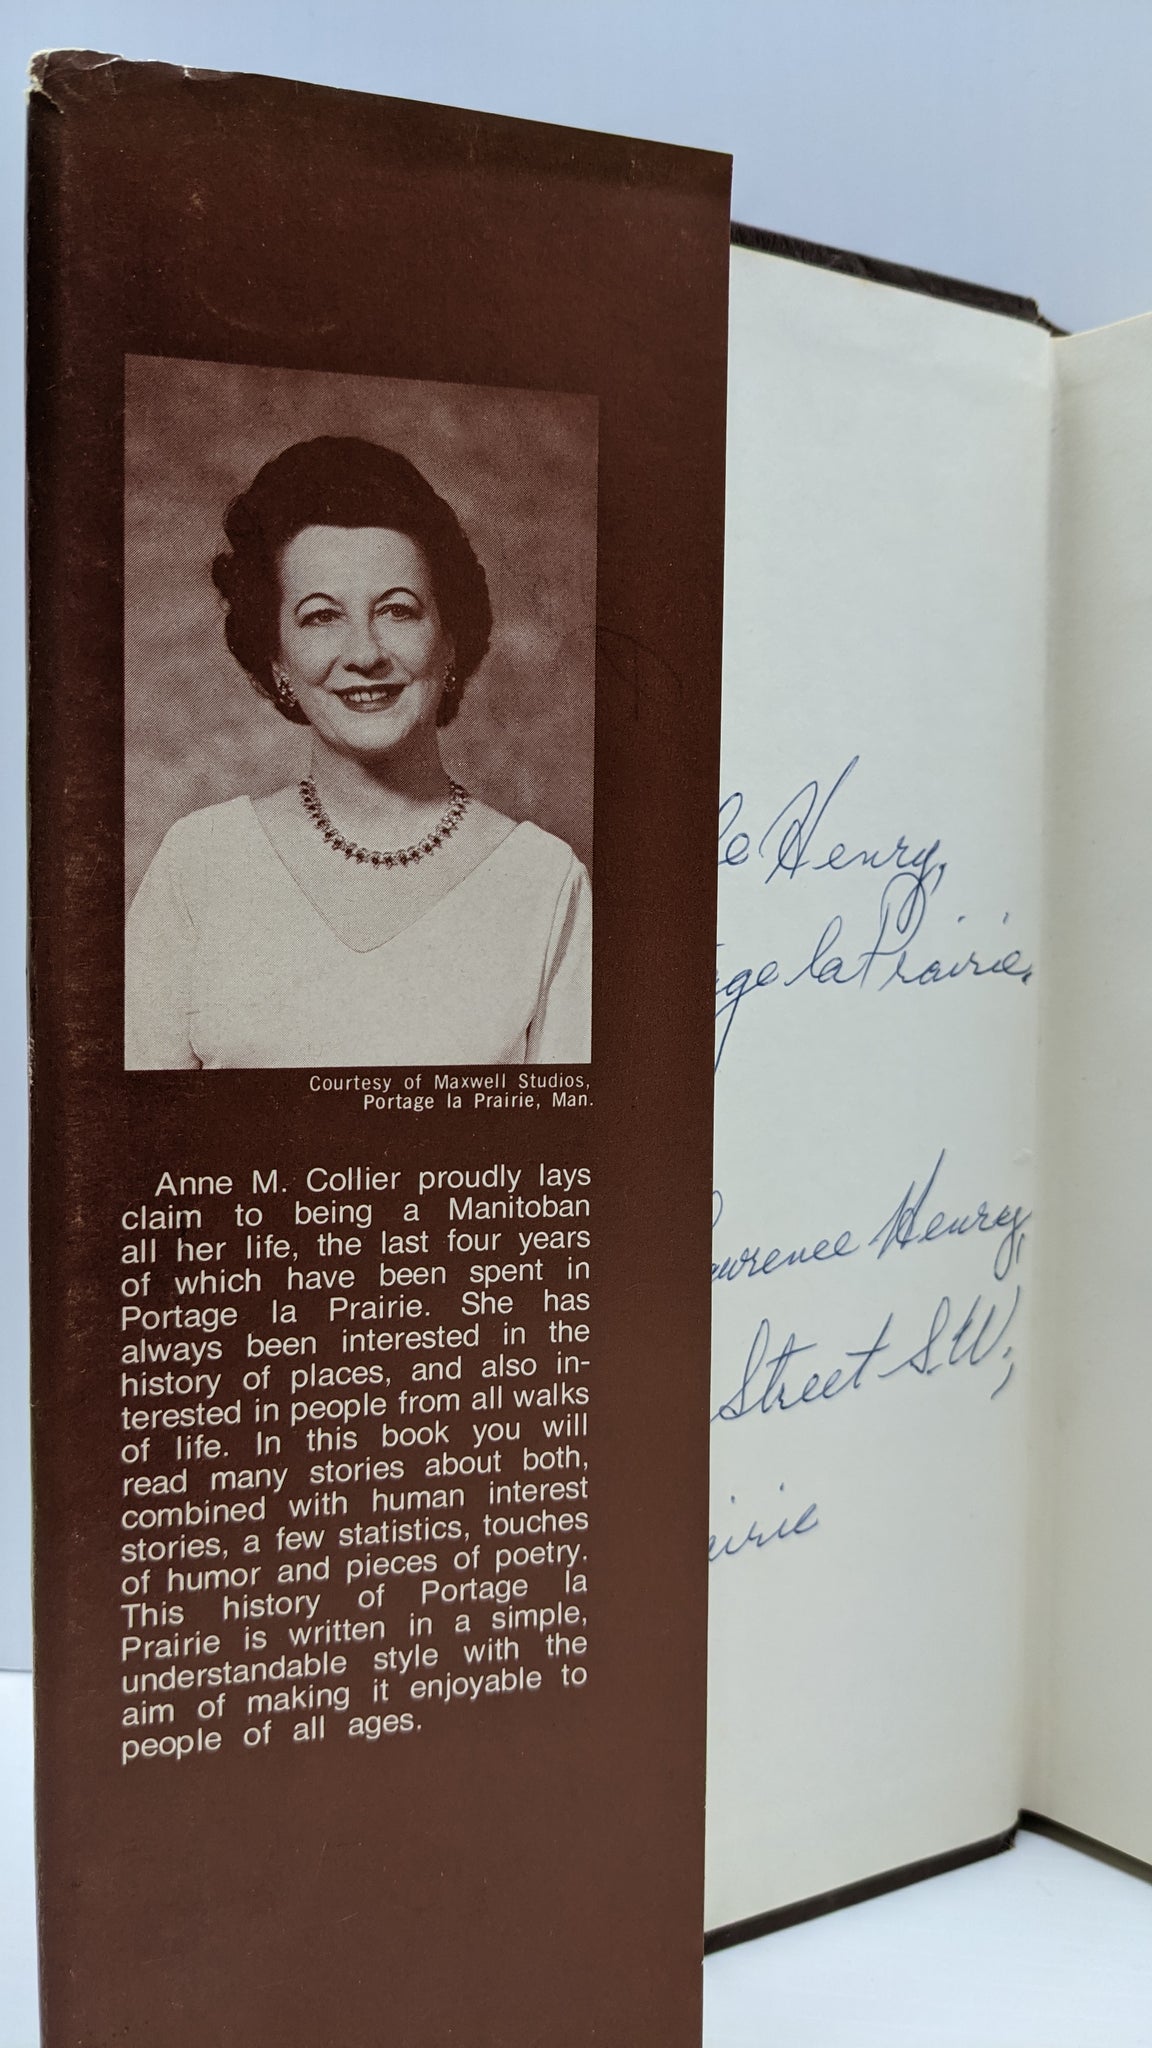 Courtesy of Maxwell Studios,
Portage la Prairie, Man.
Anne M. Collier proudly lays
claim to being a Manitoban
all her life, the last four years
of which have been spent in
Portage la Prairie. She has
always been interested in the
history of places, and also in-
terested in people from all walks
of life. In this book you will
read many stories about both,
combined with human interest
stories, a few statistics, touches
of humor and pieces of poetry.
This history of Portage la
Prairie is written in a simple,
understandable style with the
aim of making it enjoyable to
people of all ages.
Henry,
la Prairie.
Henry,
Street S.W.,